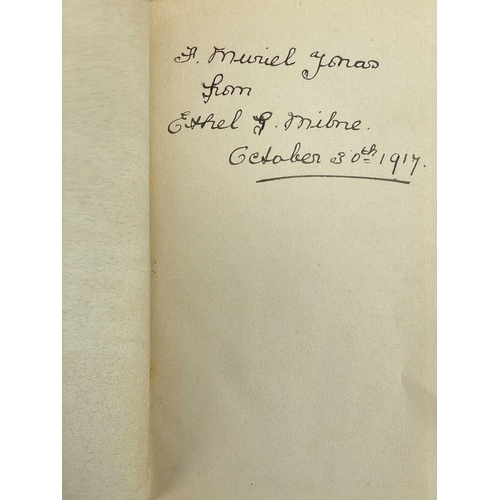 F. Muriel Jonas
from
Ethel G. Milne.
October 30th 1917.